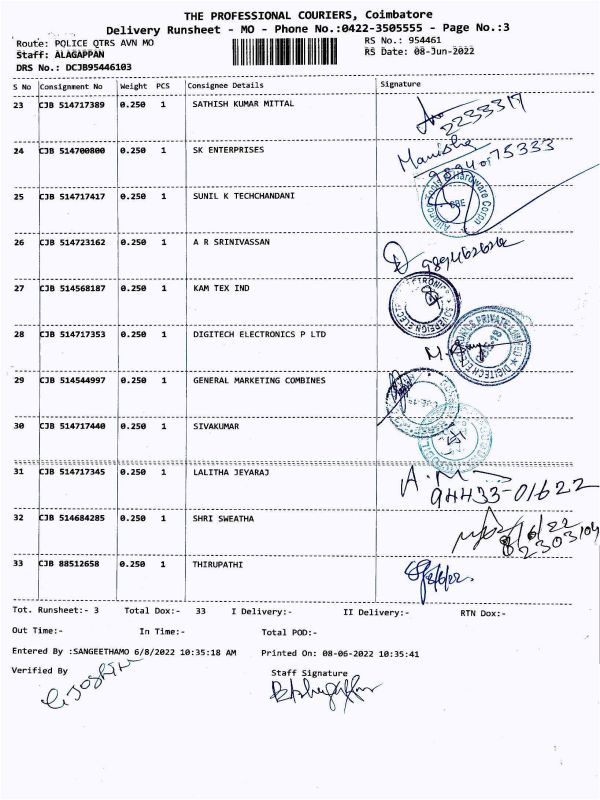 THE PROFESSIONAL COURIERS, Coimbatore
Delivery Runsheet - MO - Phone No.:0422-3505555 - Page No.:3
Route: POLICE QTRS AVN MO RS No.: 954461
Staff: ALAGAPPAN RS Date: 08-Jun-2022
DRS No.: DCJB95446103
S No Consignment No Weight PCS Consignee Details Signature
23 CJB 514717389 0.250 1 SATHISH KUMAR MITTAL
2233317
24 CJB 514700800 0.250 1 SK ENTERPRISES
Manisha
9894075333
25 CJB 514717417 0.250 1 SUNIL K TECHCHANDANI
26 CJB 514723162 0.250 1 A R SRINIVASSAN
27 CJB 514568187 0.250 1 KAM TEX IND
28 CJB 514717353 0.250 1 DIGITECH ELECTRONICS P LTD
29 CJB 514544997 0.250 1 GENERAL MARKETING COMBINES
30 CJB 514717440 0.250 1 SIVAKUMAR
31 CJB 514717345 0.250 1 LALITHA JEYARAJ
94433-01622
32 CJB 514684285 0.250 1 SHRI SWEATHA
8/6/22
2303104
33 CJB 88512658 0.250 1 THIRUPATHI
Tot. Runsheet:- 3 Total Dox:- 33 I Delivery:- II Delivery:- RTN Dox:-
Out Time:- In Time:- Total POD:-
Entered By :SANGEETHAMO 6/8/2022 10:35:18 AM Printed On: 08-06-2022 10:35:41
Verified By Staff Signature